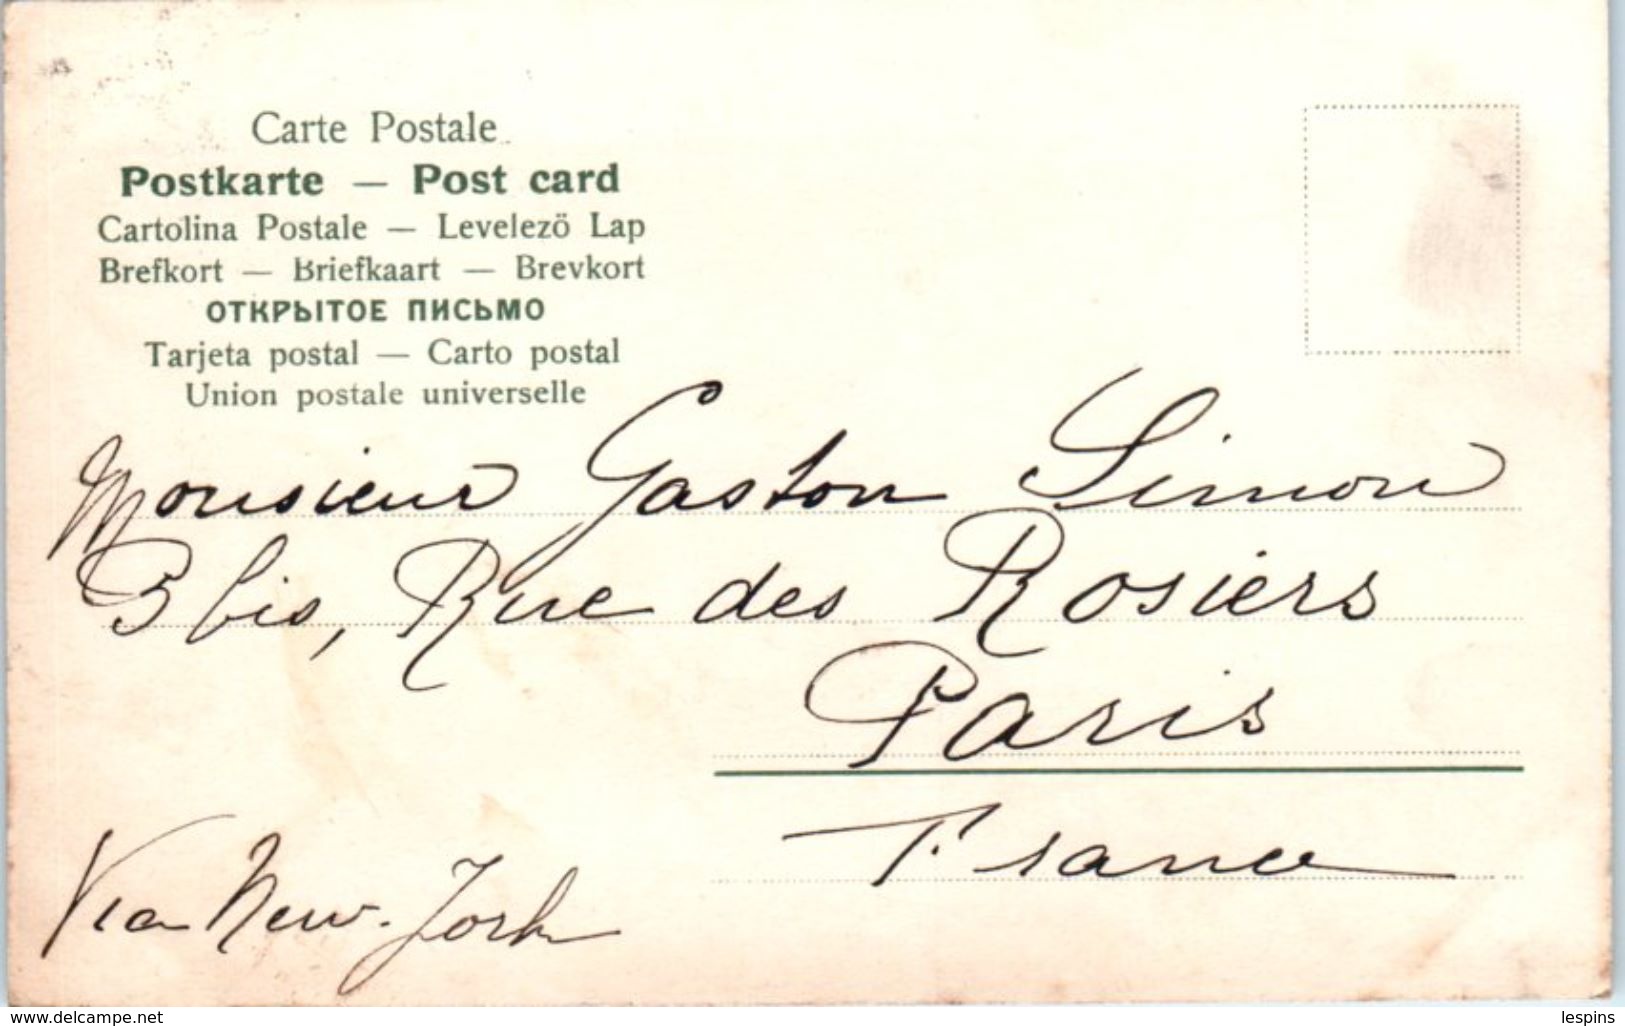 Carte Postale
Postkarte — Post card
Cartolina Postale — Levelezö Lap
Brefkort — Briefkaart — Brevkort
ОТКРЫТОЕ ПИСЬМО
Tarjeta postal — Carto postal
Union postale universelle
Monsieur Gaston Simon
3 bis, Rue des Rosiers
Paris
France
Via New-York
www.delcampe.net
lespins